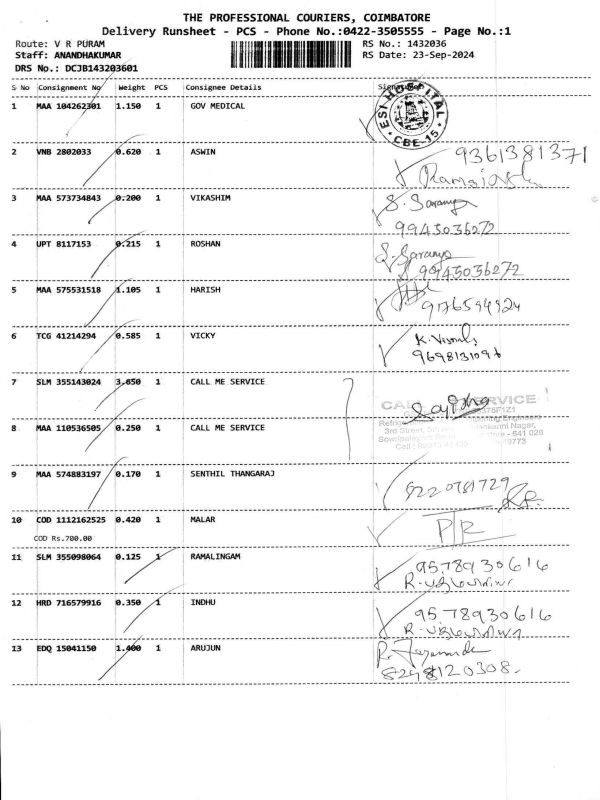 THE PROFESSIONAL COURIERS, COIMBATORE
Delivery Runsheet - PCS - Phone No.:0422-3505555 - Page No.:1
Route: V R PURAM RS No.: 1432036
Staff: ANANDHAKUMAR RS Date: 23-Sep-2024
DRS No.: DCJB143203601
S No Consignment No Weight PCS Consignee Details Signature
1 MAA 104262301 1.150 1 GOV MEDICAL ESI HOSPITAL CBE-15
2 VNB 2802033 0.620 1 ASWIN 9361381371
3 MAA 573734843 0.200 1 VIKASHIM S. Saranya
9943036272
4 UPT 8117153 0.215 1 ROSHAN S. Saranya
9943036272
5 MAA 575531518 1.105 1 HARISH
9176594924
6 TCG 41214294 0.585 1 VICKY
9698131096
7 SLM 355143024 3.650 1 CALL ME SERVICE CALL SERVICE
8 MAA 110536505 0.250 1 CALL ME SERVICE 3rd Street, Nagar, 641 028
9 MAA 574883197 0.170 1 SENTHIL THANGARAJ 8220781729
10 COD 1112162525 0.420 1 MALAR P/R
COD Rs.700.00
11 SLM 355098064 0.125 1 RAMALINGAM 9578930616
12 HRD 716579916 0.350 1 INDHU 9578930616
13 EDQ 15041150 1.400 1 ARUJUN
8248120308.